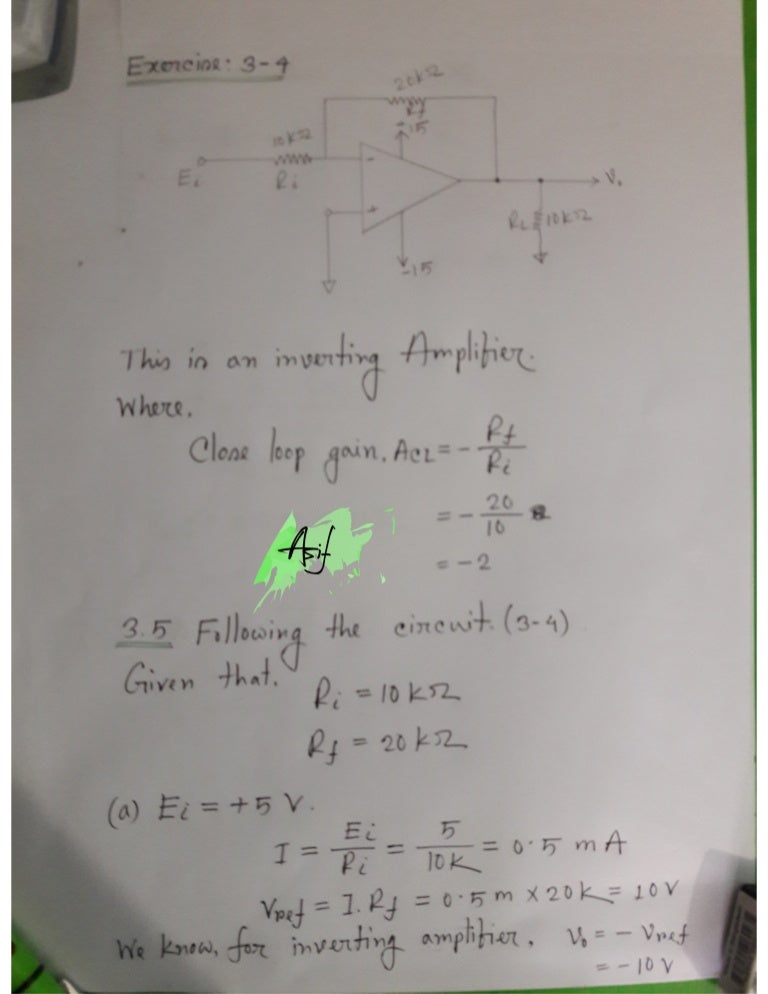 Exercise: 3-4
20kΩ
Rf
+15
10kΩ
Ei
Ri
-
+
V₀
RL 10kΩ
-15
This is an inverting Amplifier.
Where,
Close loop gain, ACL = - Rf/Ri
= - 20/10
= -2
Asif
3.5 Following the circuit. (3-4)
Given that,
Ri = 10 kΩ
Rf = 20 kΩ
(a) Ei = +5 V.
I = Ei/Ri = 5/10K = 0.5 mA
Vref = I.Rf = 0.5 m × 20 k = 10V
We know, for inverting amplifier, V₀ = - Vref
= -10 V